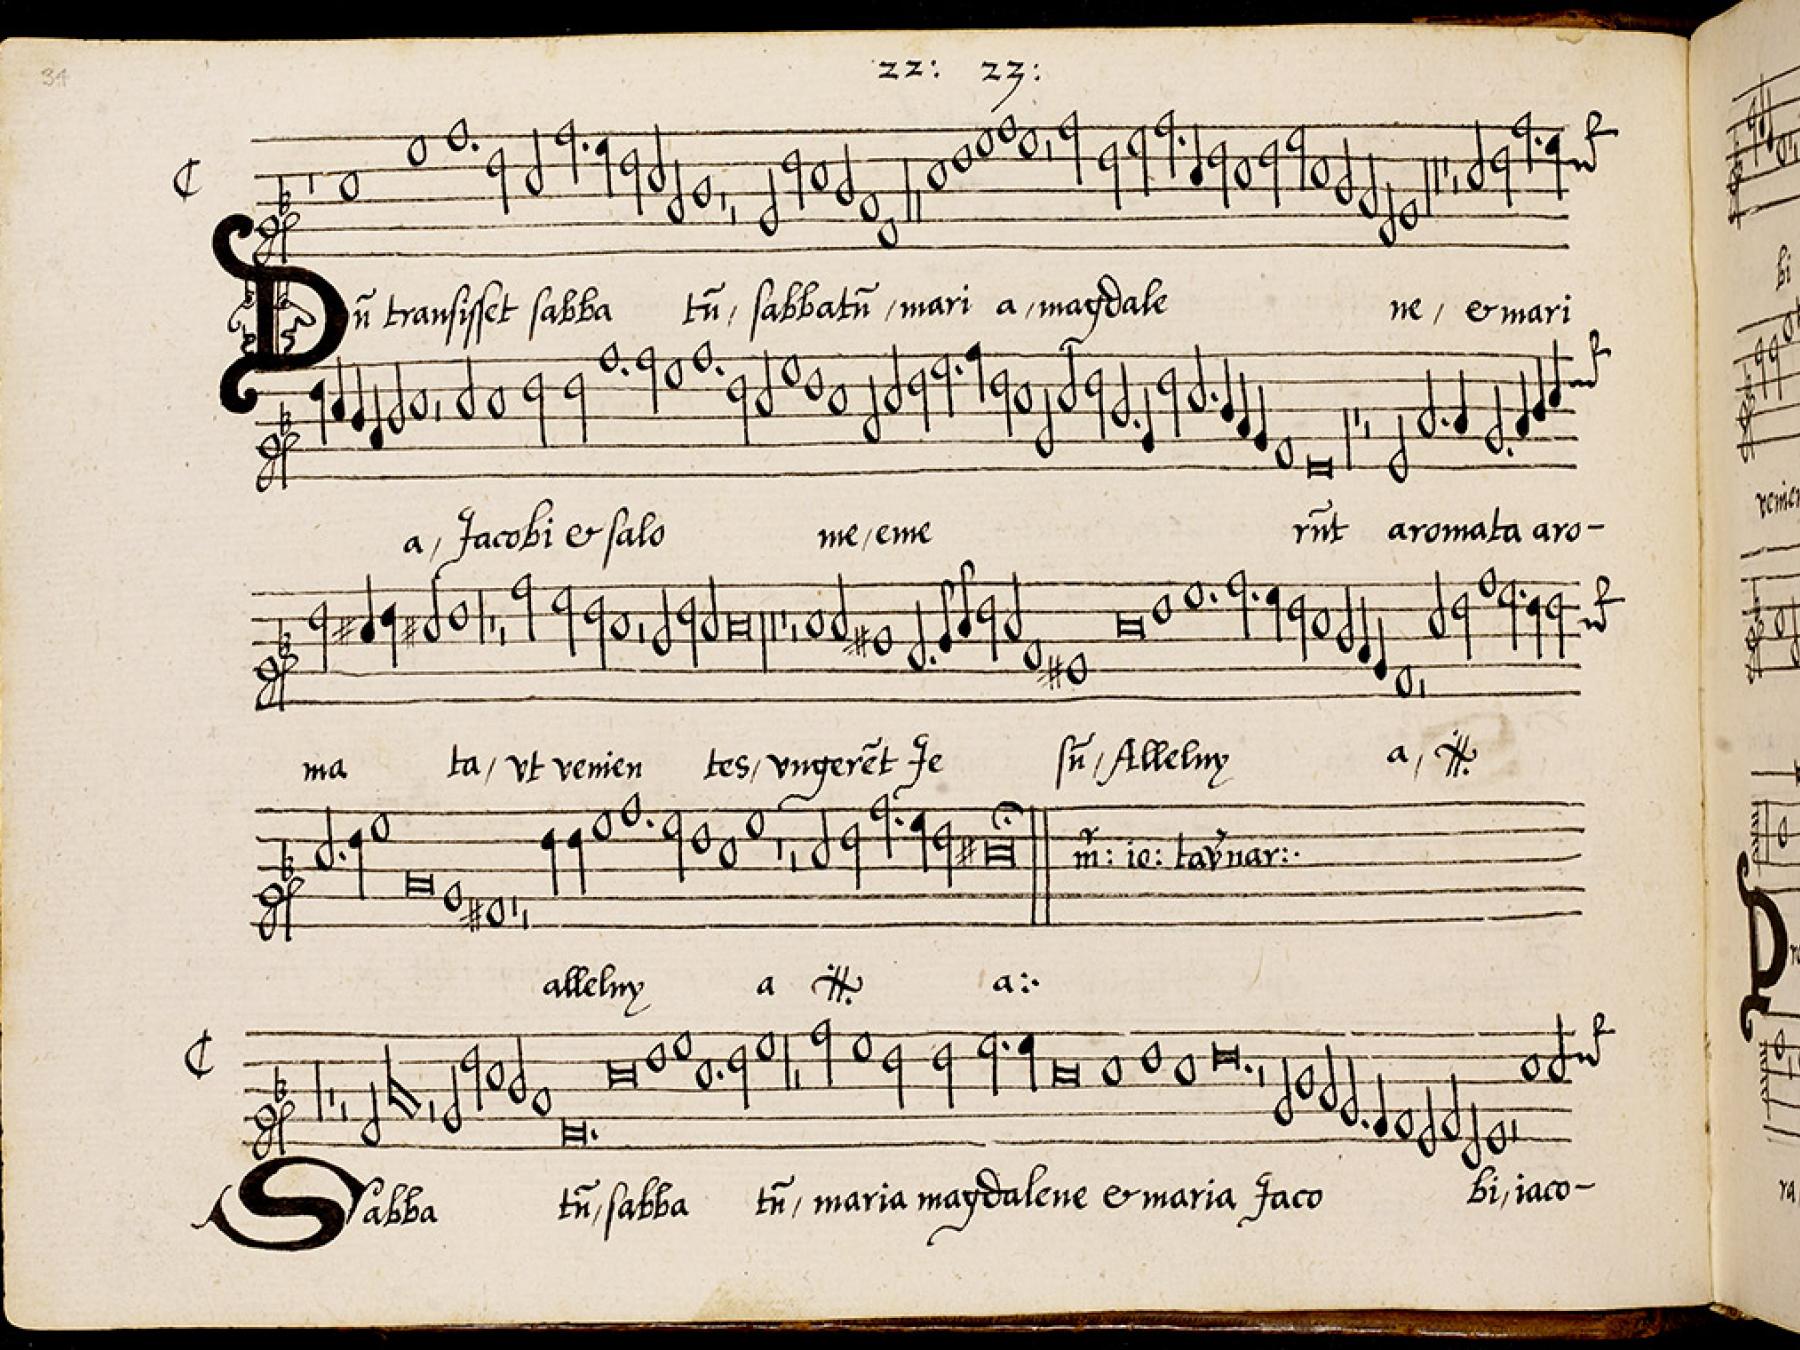 34
22: 23:
Dū transisset sabba tū, sabbatū, mari a, magdale ne, & mari
a, Jacobi & salo me, eme rūt aromata aro-
ma ta, vt venien tes, vngerēt Je sū, Alleluy a, ij.
mr: io: tavrnar:
alleluy a ij. a:
Sabba tū, sabba tū, maria magdalene & maria Jaco bi, iaco-
bi
venien
ra,